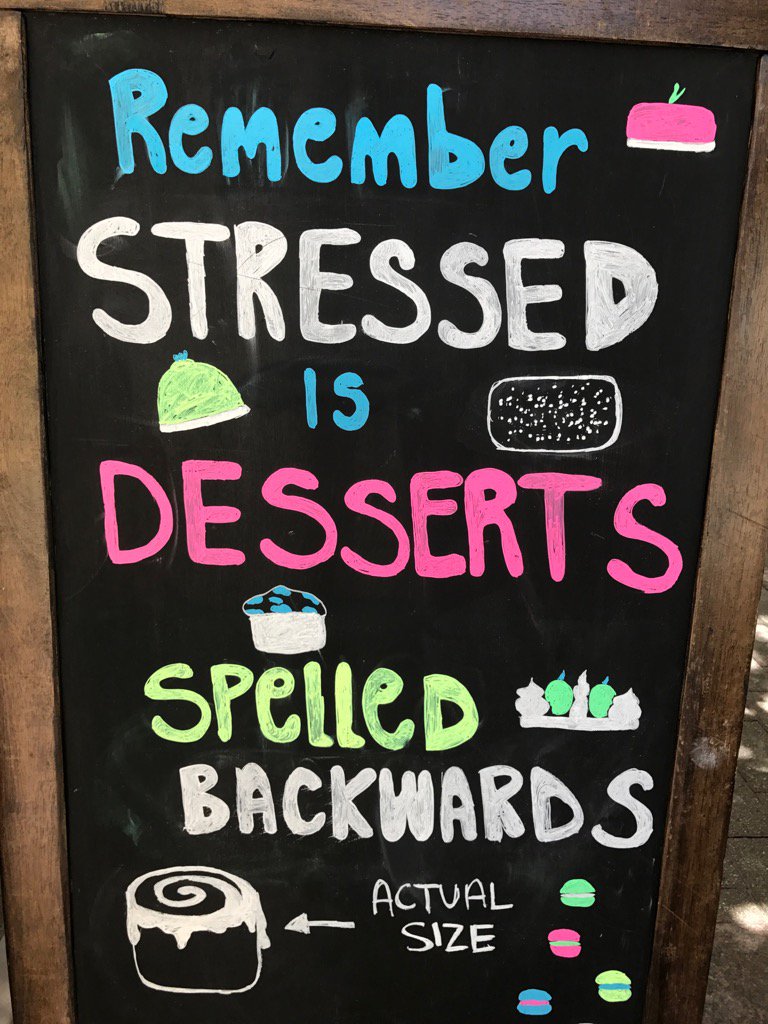 Remember
STRESSED
IS
DESSERTS
SPelleD
BACKWARDS
ACTUAL
SIZE